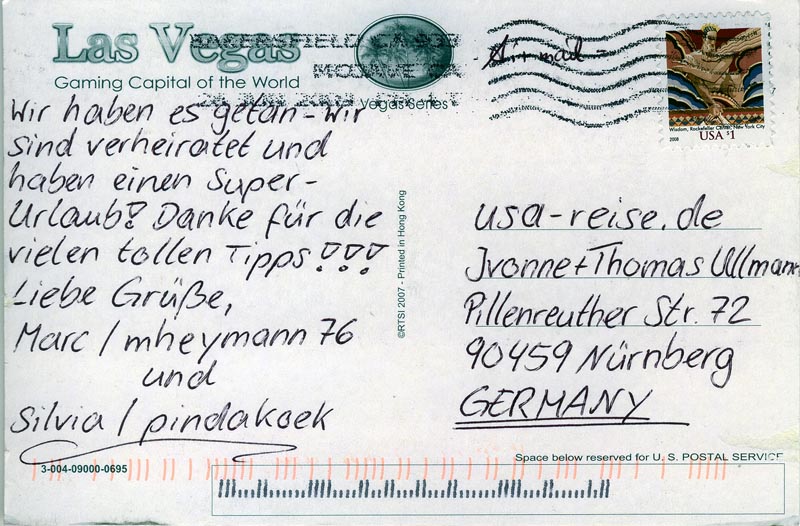 Las Vegas
Gaming Capital of the World
Vegas Series
BAKERSFIELD CA 933
MOJAVE
Airmail
Wisdom, Rockefeller Center, New York City
2008
USA $1
Wir haben es getan - wir
sind verheiratet und
haben einen Super-
Urlaub! Danke für die
vielen tollen Tipps!!!
Liebe Grüße,
Marc / mheymann 76
und
Silvia / pindakoek
©RTSI 2007 - Printed in Hong Kong
usa-reise.de
Yvonne + Thomas Ullmann
Pillenreuther Str. 72
90459 Nürnberg
GERMANY
Space below reserved for U. S. POSTAL SERVICE
3-004-09000-0695